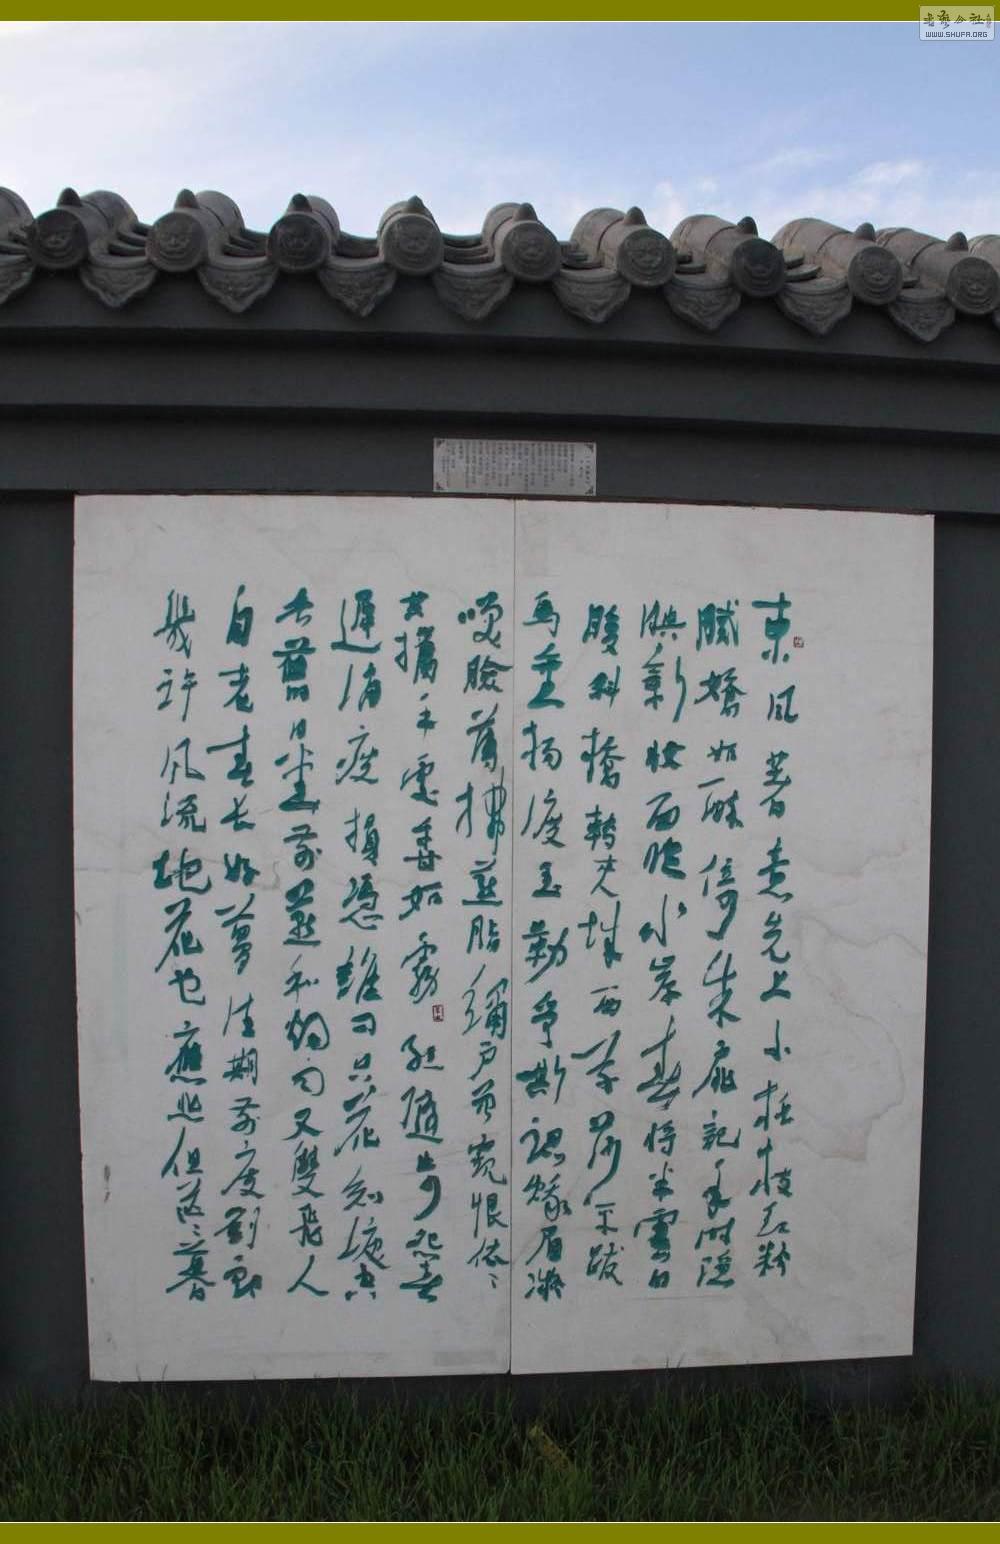 WWW.SHUFA.ORG
東風著意先上小桃枝紅粉
膩嬌如醉倚朱扉記年時隱
映新妝面臨水岸春將半雲日
暖斜橋轉夾城西草莎平跋
馬垂楊渡玉勒爭嘶認蛾眉凝
笑臉薄拂燕脂繡戶曾窺恨依〻
共攜手處香如霧紅隨步怨春
遲消瘦損憑誰問只花知淚空
垂舊日堂前燕和煙雨又雙飛人
自老春長好夢佳期前度劉郎
幾許風流地花也應悲但茫〻暮